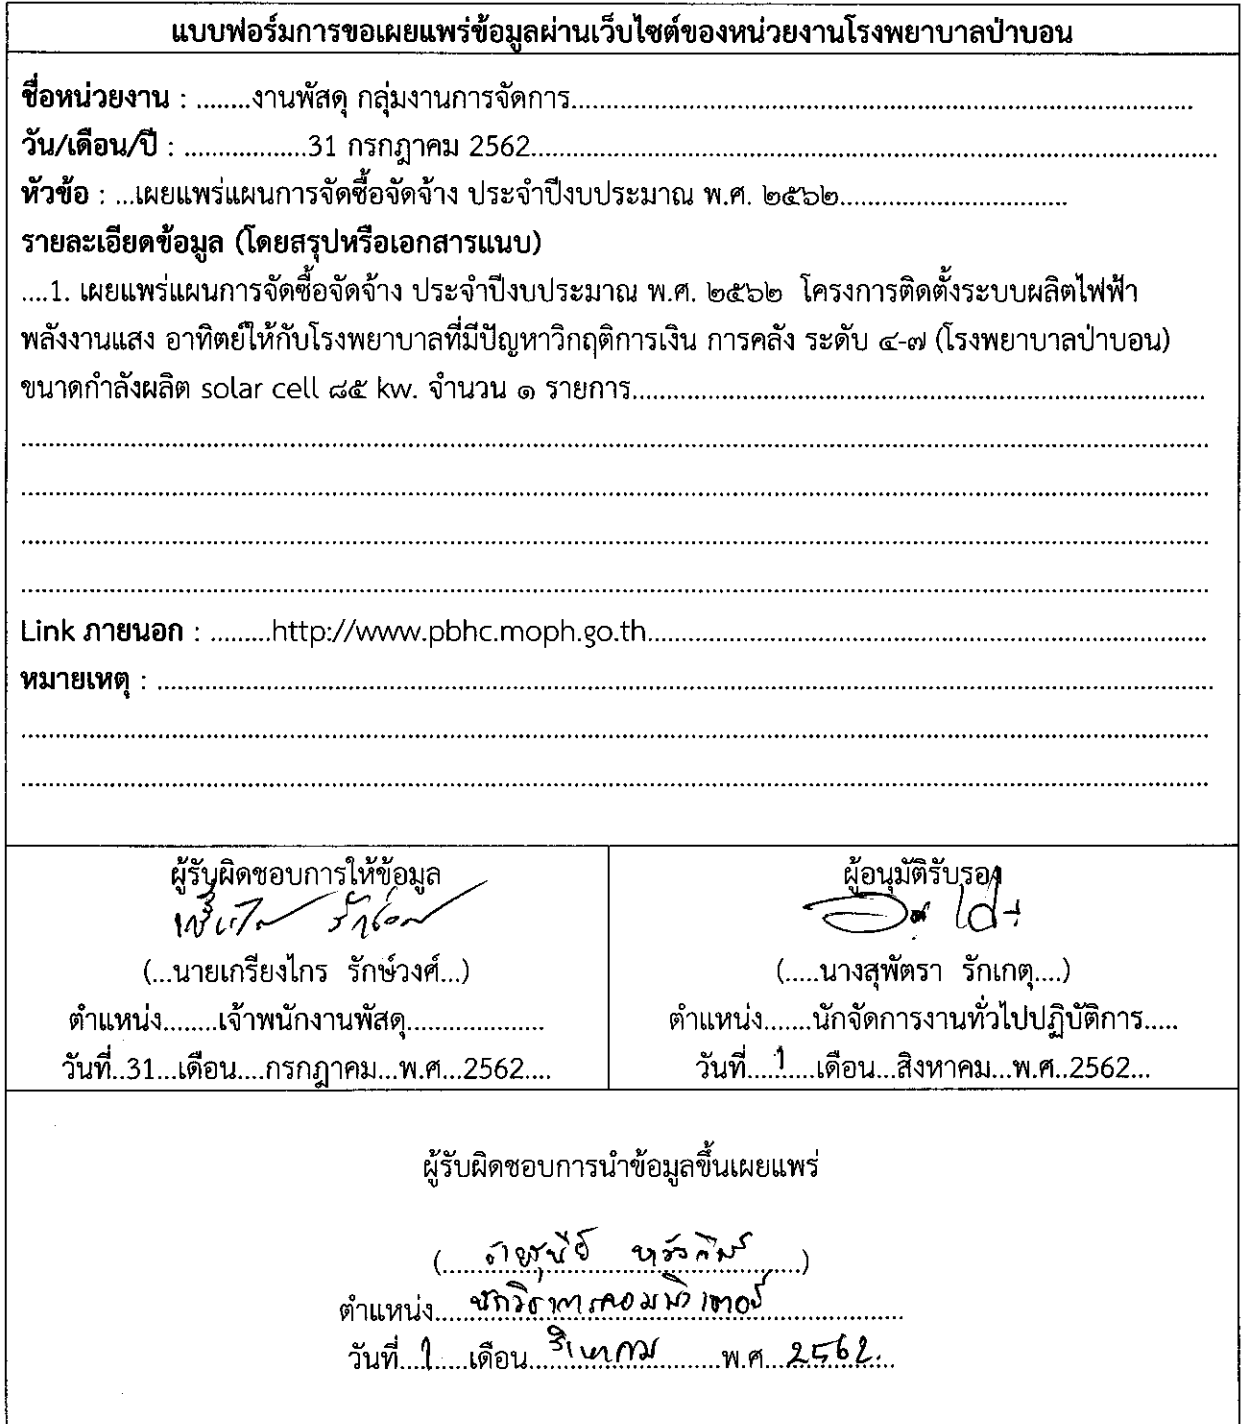 แบบฟอร์มการขอเผยแพร่ข้อมูลผ่านเว็บไซต์ของหน่วยงานโรงพยาบาลป่าบอน
ชื่อหน่วยงาน : ........งานพัสดุ กลุ่มงานการจัดการ..........
วัน/เดือน/ปี : ..................31 กรกฎาคม 2562..........
หัวข้อ : ...เผยแพร่แผนการจัดซื้อจัดจ้าง ประจำปีงบประมาณ พ.ศ. ๒๕๖๒..........
รายละเอียดข้อมูล (โดยสรุปหรือเอกสารแนบ)
....1. เผยแพร่แผนการจัดซื้อจัดจ้าง ประจำปีงบประมาณ พ.ศ. ๒๕๖๒ โครงการติดตั้งระบบผลิตไฟฟ้า
พลังงานแสง อาทิตย์ให้กับโรงพยาบาลที่มีปัญหาวิกฤติการเงิน การคลัง ระดับ ๔-๗ (โรงพยาบาลป่าบอน)
ขนาดกำลังผลิต solar cell ๘๕ kw. จำนวน ๑ รายการ..........
Link ภายนอก : .........http://www.pbhc.moph.go.th..........
หมายเหตุ : ..........
ผู้รับผิดชอบการให้ข้อมูล
(...นายเกรียงไกร รักษ์วงศ์...)
ตำแหน่ง........เจ้าพนักงานพัสดุ....................
วันที่..31...เดือน....กรกฎาคม...พ.ศ...2562....
ผู้อนุมัติรับรอง
(.....นางสุพัตรา รักเกตุ....)
ตำแหน่ง.......นักจัดการงานทั่วไปปฏิบัติการ.....
วันที่.....1.....เดือน...สิงหาคม...พ.ศ..2562...
ผู้รับผิดชอบการนำข้อมูลขึ้นเผยแพร่
ตำแหน่ง.....นักวิชาการคอมพิวเตอร์..........
วันที่...1.....เดือน....สิงหาคม..........พ.ศ....2562...